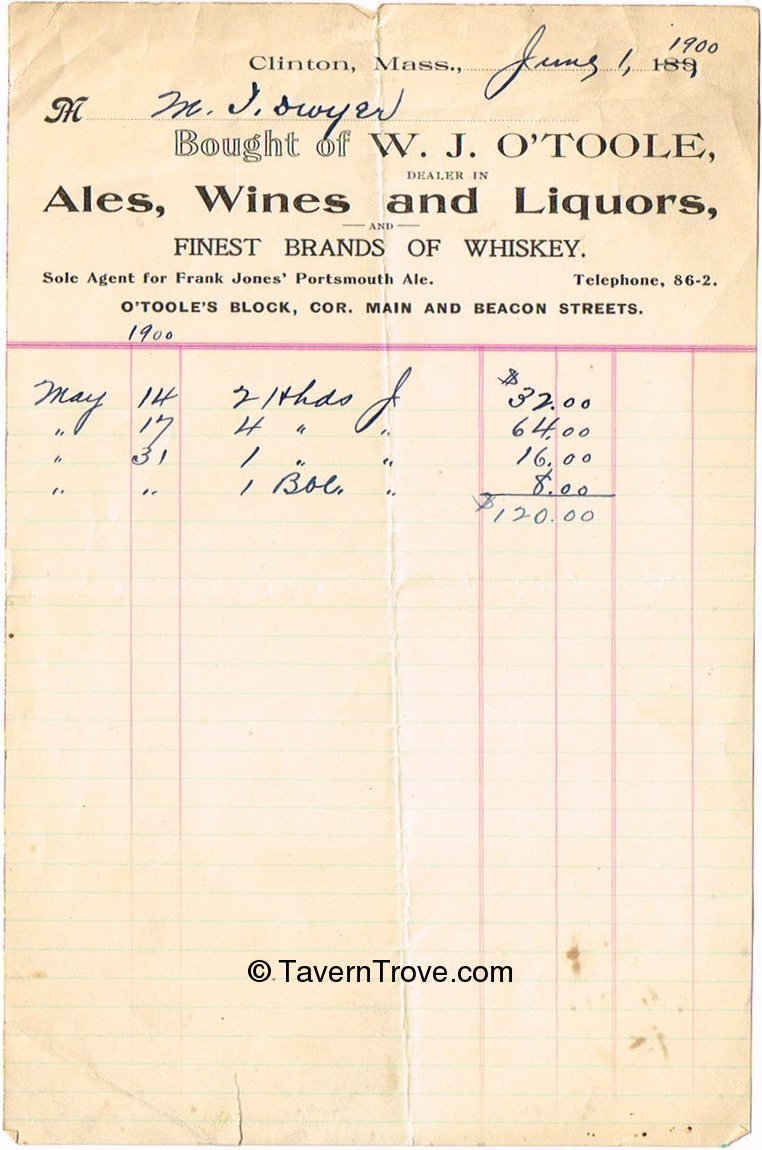 1900
Clinton, Mass., June 1, 189
M M. J. Dwyer
Bought of W. J. O'TOOLE,
DEALER IN
Ales, Wines and Liquors,
AND
FINEST BRANDS OF WHISKEY.
Sole Agent for Frank Jones' Portsmouth Ale. Telephone, 86-2.
O'TOOLE'S BLOCK, COR. MAIN AND BEACON STREETS.
1900
May 14 2 Hhds J $32.00
" 17 4 " " 64.00
" 31 1 " " 16.00
" " 1 Bbl. " 8.00
$120.00
© TavernTrove.com